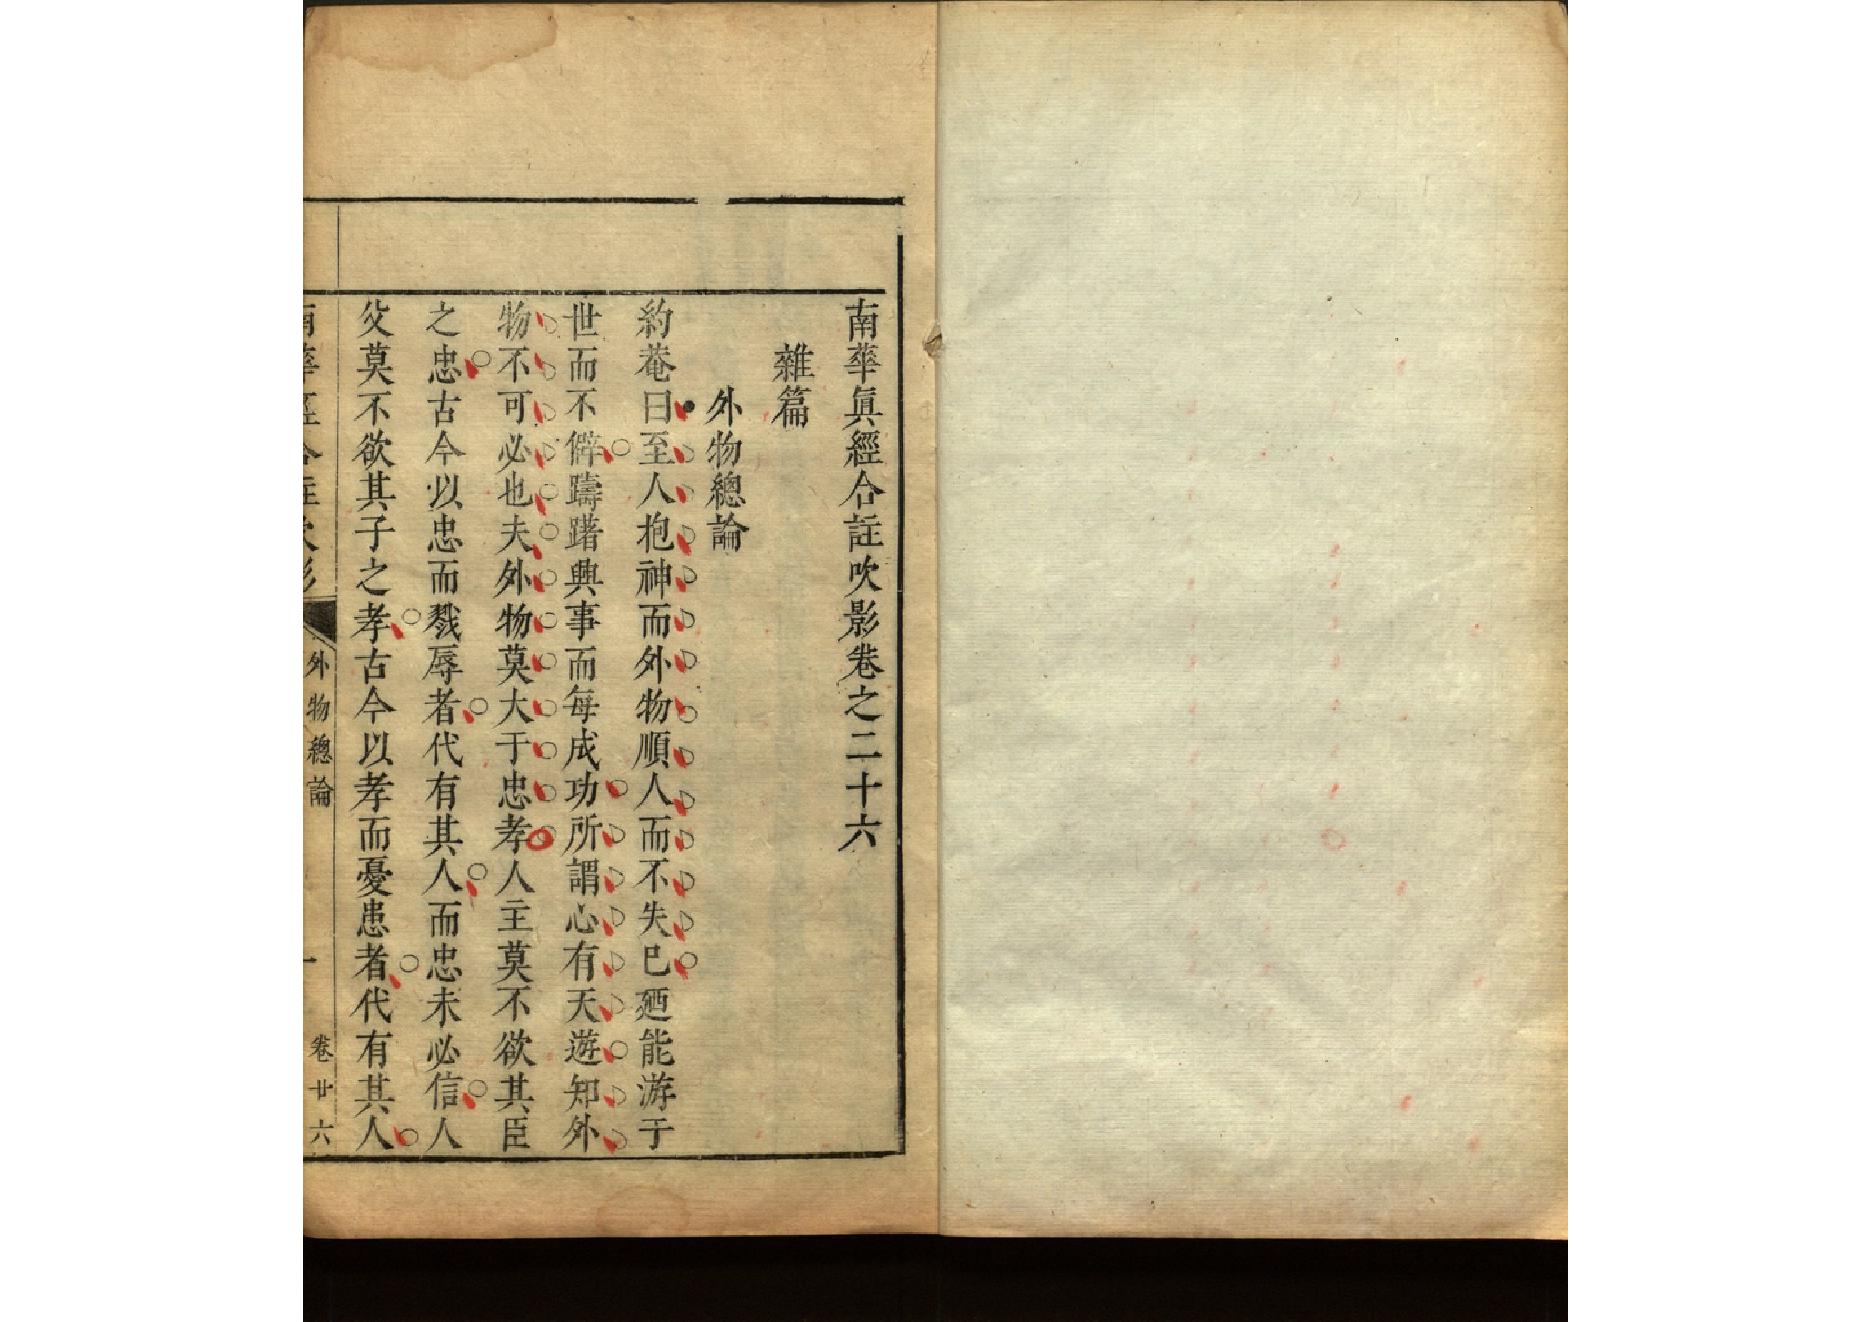 南華眞經合註吹影卷之二十六
雜篇
外物總論
約菴曰至人抱神而外物順人而不失已廼能游于
世而不僻躊躇興事而每成功所謂心有天遊知外
物不可必也夫外物莫大于忠孝人主莫不欲其臣
之忠古今以忠而戮辱者代有其人而忠未必信人
父莫不欲其子之孝古今以孝而憂患者代有其人
南華經合註吹影 外物總論 一 卷廿六